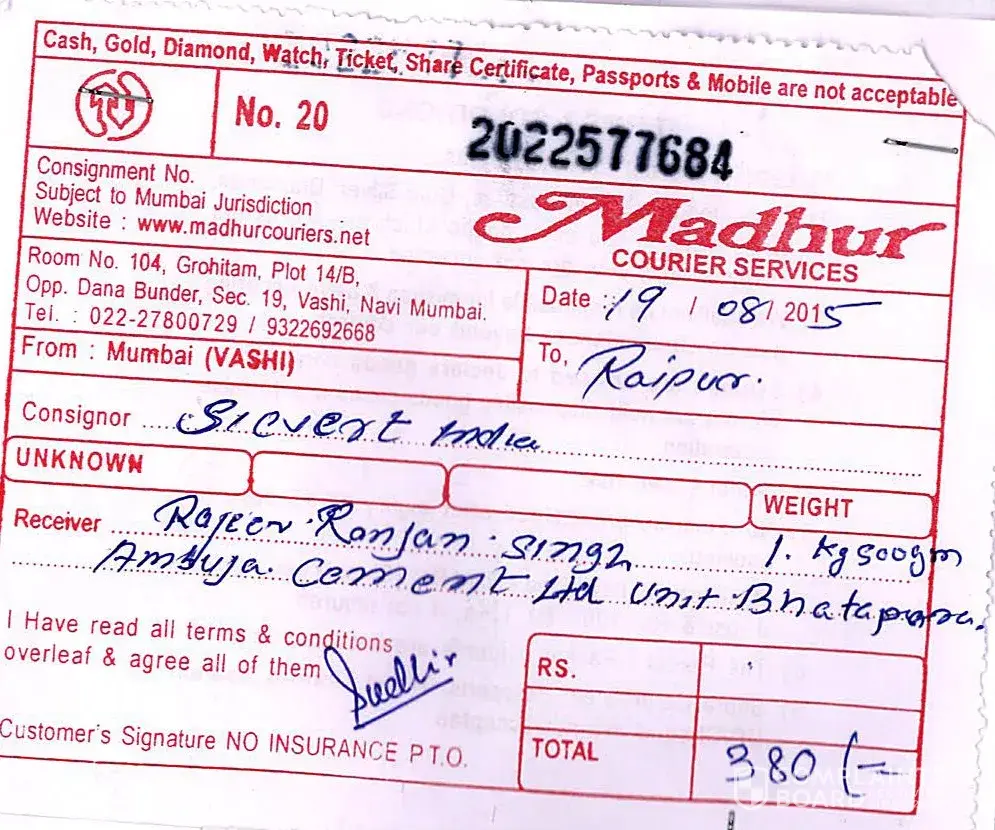 Cash, Gold, Diamond, Watch, Ticket, Share Certificate, Passports & Mobile are not acceptable
No. 20
2022577684
Consignment No.
Subject to Mumbai Jurisdiction
Website : www.madhurcouriers.net
Madhur
COURIER SERVICES
Room No. 104, Grohitam, Plot 14/B,
Opp. Dana Bunder, Sec. 19, Vashi, Navi Mumbai.
Tel. : 022-27800729 / 9322692668
Date : 19 / 08 / 2015
From : Mumbai (VASHI)
To, Raipur.
Consignor Sievert India
UNKNOWN
WEIGHT
Receiver Rajeev Ranjan Singh 1. Kg 500gm
Ambuja Cement Ltd Unit Bhatapara.
I Have read all terms & conditions
overleaf & agree all of them Sudhir
RS.
Customer's Signature NO INSURANCE P.T.O.
TOTAL 380/-
COMPLAINT
BOARD